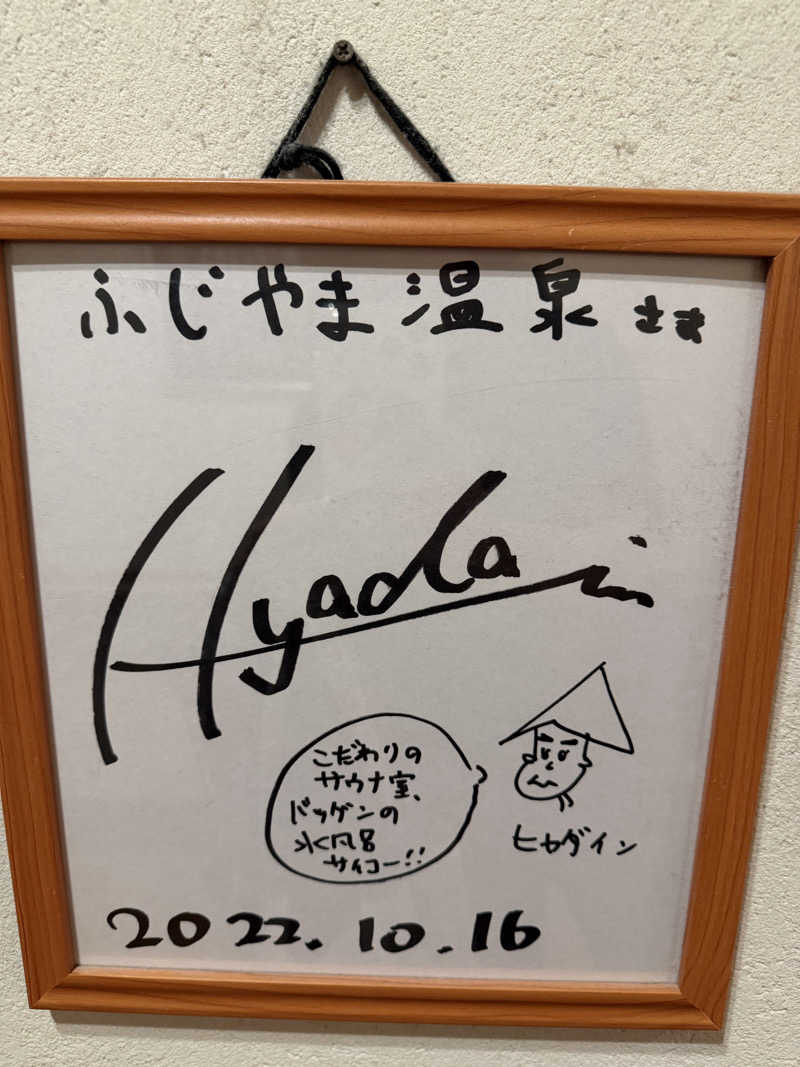 ふじやま温泉さま
Hyadain
こだわりの
サウナ室、
バツゲンの
水風呂
サイコー!!
ヒャダイン
2022.10.16